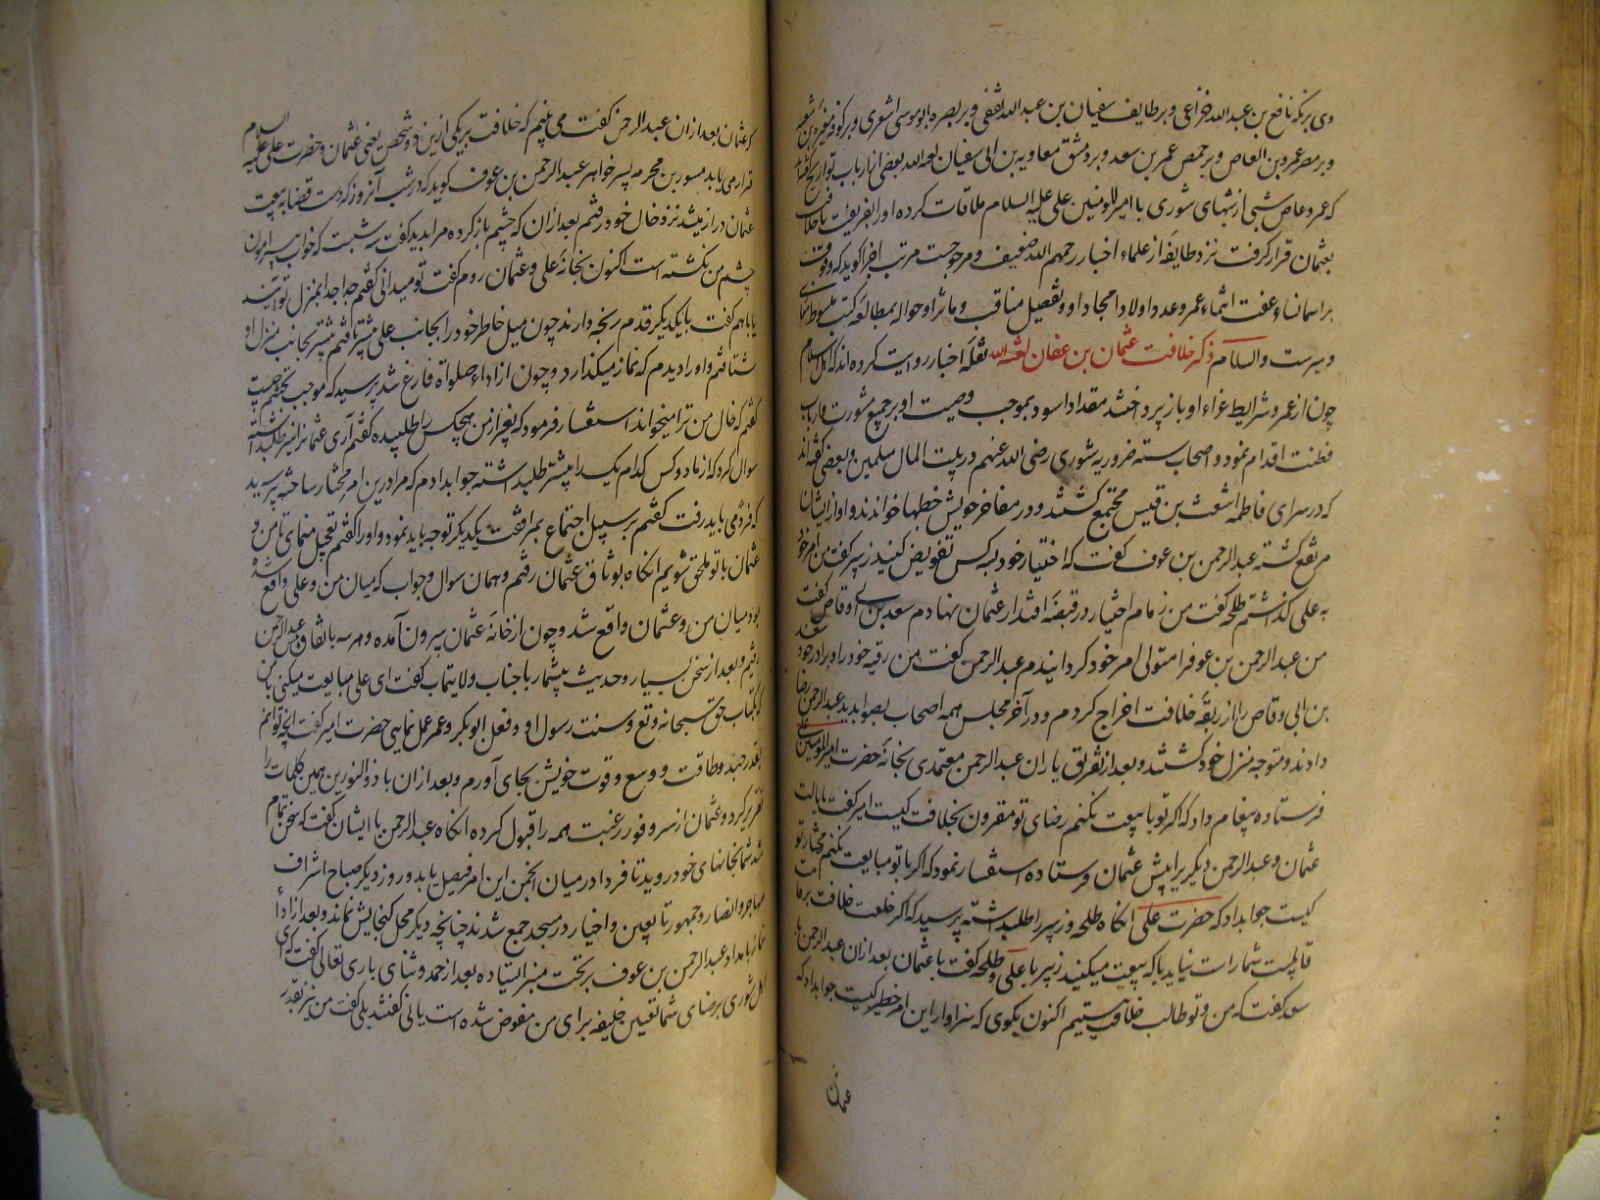 وی بر مکه نافع بن عبد الله خزاعی و بر طایف سفیان بن عبد الله ثقفی و بر بصره ابو موسی اشعری و بر کوفه مغیره بن شعبه
و بر مصر عمرو بن العاص و بر حمص عمر بن سعد و بر دمشق معاویه بن ابی سفیان لعه الله بعضی از ارباب تواریخ گفته‌اند
که عمرو عاص شبی از شبهای شوری با امیر المومنین علی علیه السلام ملاقات کرده او را بفریفت تا خلافت
بعثمان قرار گرفت نزد طایفهٔ از علماء اخبار رحمهم الله ضعیف و مرجوحست مرتب اجزا گوید که وقوف
بر اسماء و عفت اثماء عمر و عدد اولاد امجاد او و تفصیل مناقب و مآثر او حواله بمطالعه کتب مبسوط اسمای
و سیرست والسلام ذکر خلافت عثمان بن عفان لعنه الله نقلهٔ اخبار روایت کرده‌اند که اهل اسلام
چون از عمر و شرایط عزاء او باز پرداختند مقداد اسود بموجب وصیت او بر جمیع مشورت و ارباب
فطنت اقدام نمود و اصحاب سته ضروریه شوری رضی الله عنهم در بیت المال مسلمین و بعضی گفته‌اند
که در سرای فاطمه اشعث بن قیس مجتمع گشتند و در مفاخر خویش خطبها خواندند و آواز ایشان
مرتفع گشته عبد الرحمن بن عوف گفت که اختیار خود بسه کس تفویض کنید زبیر گفت من امر خود
به علی گذاشتم طلحه گفت من زمام اختیار در قبضهٔ اقتدار عثمان نهادم سعد بن ابی وقاص گفت
من عبد الرحمن بن عوف را متولی امر خود گردانیدم عبد الرحمن گفت من رقبه خود را و برادر خود سعد
بن ابی وقاص را از ربقهٔ خلافت اخراج کردم و در آخر مجلس همه اصحاب بصوابدید عبد الرحمن رضا
دادند و متوجه منزل خود گشتند و بعد از تفریق یاران عبد الرحمن معتمدی بخانهٔ حضرت امیر المومنین علی
فرستاده پیغام داد که اگر تو با بیعت نکنم رضای تو مقرون بخلافت کیست امیر گفت بایالت
عثمان و عبد الرحمن دیگر برا پیش عثمان فرستاده استفسار نمود که اگر با تو مبایعت نکنم مختار تو
کیست جواب داد که حضرت علی انکاه طلحه و زبیر را طلبداشته پرسید که اگر خلعت خلافت بر قامت
قابلیت شما راست نیاید با که بیعت میکنید زبیر با علی و طلحه گفت با عثمان بعد ازان عبد الرحمن با
سعد گفت که من و تو طالب خلافت نیستیم اکنون بگوی که سزاوار این امر خطیر کیست جواب داد که
عثمان
که عثمان بعد ازان عبد الرحمن گفت می بینم که خلافت بر یکی ازین دو شخص یعنی عثمان و حضرت علی علیه السلام
قرار می یابد مسور بن مخرمه پسر خواهر عبد الرحمن بن عوف گوید که در شب آنروز که دست قضا به بیعت
عثمان دراز میشد نزد خال خود رفتم بعد ازان که چشم باز کرده مرا بدید گفت سه شبست که خواب پیرامون
چشم من نگشته است اکنون بخانهٔ علی و عثمان روم گفت تو میدانی گفتم جدا جدا بمنزل تو آیند
یا باهم گفت با یکدیگر قدم رنجه دارند چون میل خاطر خود را بجانب علی بیشتر یافتم بیشتر بجانب منزل او
شتافتم و او را دیدم که نماز میگذارد و چون از اداء صلواة فارغ شد پرسید که موجب تجشم چیست
گفتم که خال من ترا میخواند استفسار فرمود که بغیر از من هیچکس را طلبیده گفتم آری عثمانرا نیز طلبداشته
سوال کرد که از ما دو کس کدام یک را پیشتر طلبداشته جواب دادم که مرا درین امر مختار ساخته پرسید
که فردمی باید رفت گفتم بر سبیل اجتماع بمرافقت یکدیگر توجه باید نموده و او را گفتم تعجیل منمای تا من و
عثمان با تو ملحق شویم انکاه بوثاق عثمان رفتم و همان سوال و جواب که میان من و علی واقع شده
بود میان من و عثمان واقع شد و چون از خانهٔ عثمان بیرون آمده و هر سه باتفاق پیش عبد الرحمن
رفتیم و بعد از سخن بسیار و حدیث بیشمار با جناب ولایتماب گفت ای علی مبایعت میکنی با من
که بکتاب حق سبحانه و تع و سنت رسول او و فعل ابوبکر و عمر عمل نمایی حضرت امیر گفت آنچه توانم
بقدر جهد و طاقت و وسع و قوت خویش بجای آورم و بعد ازان با ذو النورین همین کلمات را
تقریر کرد و عثمان از سر وفور رغبت همه را قبول کرده انکاه عبد الرحمن با ایشان گفت که سخن تمام
شد شما بخانهای خود روید تا فردا در میان انجمن این امر فیصل یابد و روز دیگر صباح اشراف
مهاجر و انصار و جمهور تابعین و اخیار در مسجد جمع شدند چنانچه دیگر محل گنجایش نماند و بعد از اداء
نماز بامداد عبد الرحمن بن عوف بر تخت منبر ایستاده بعد از حمد و ثنای باری تعالی گفت که ای
اهل شوری برضای شما تعیین خلیفه برای من مفوض شده است یا نی گفتند بلی گفت من نیز بقدر